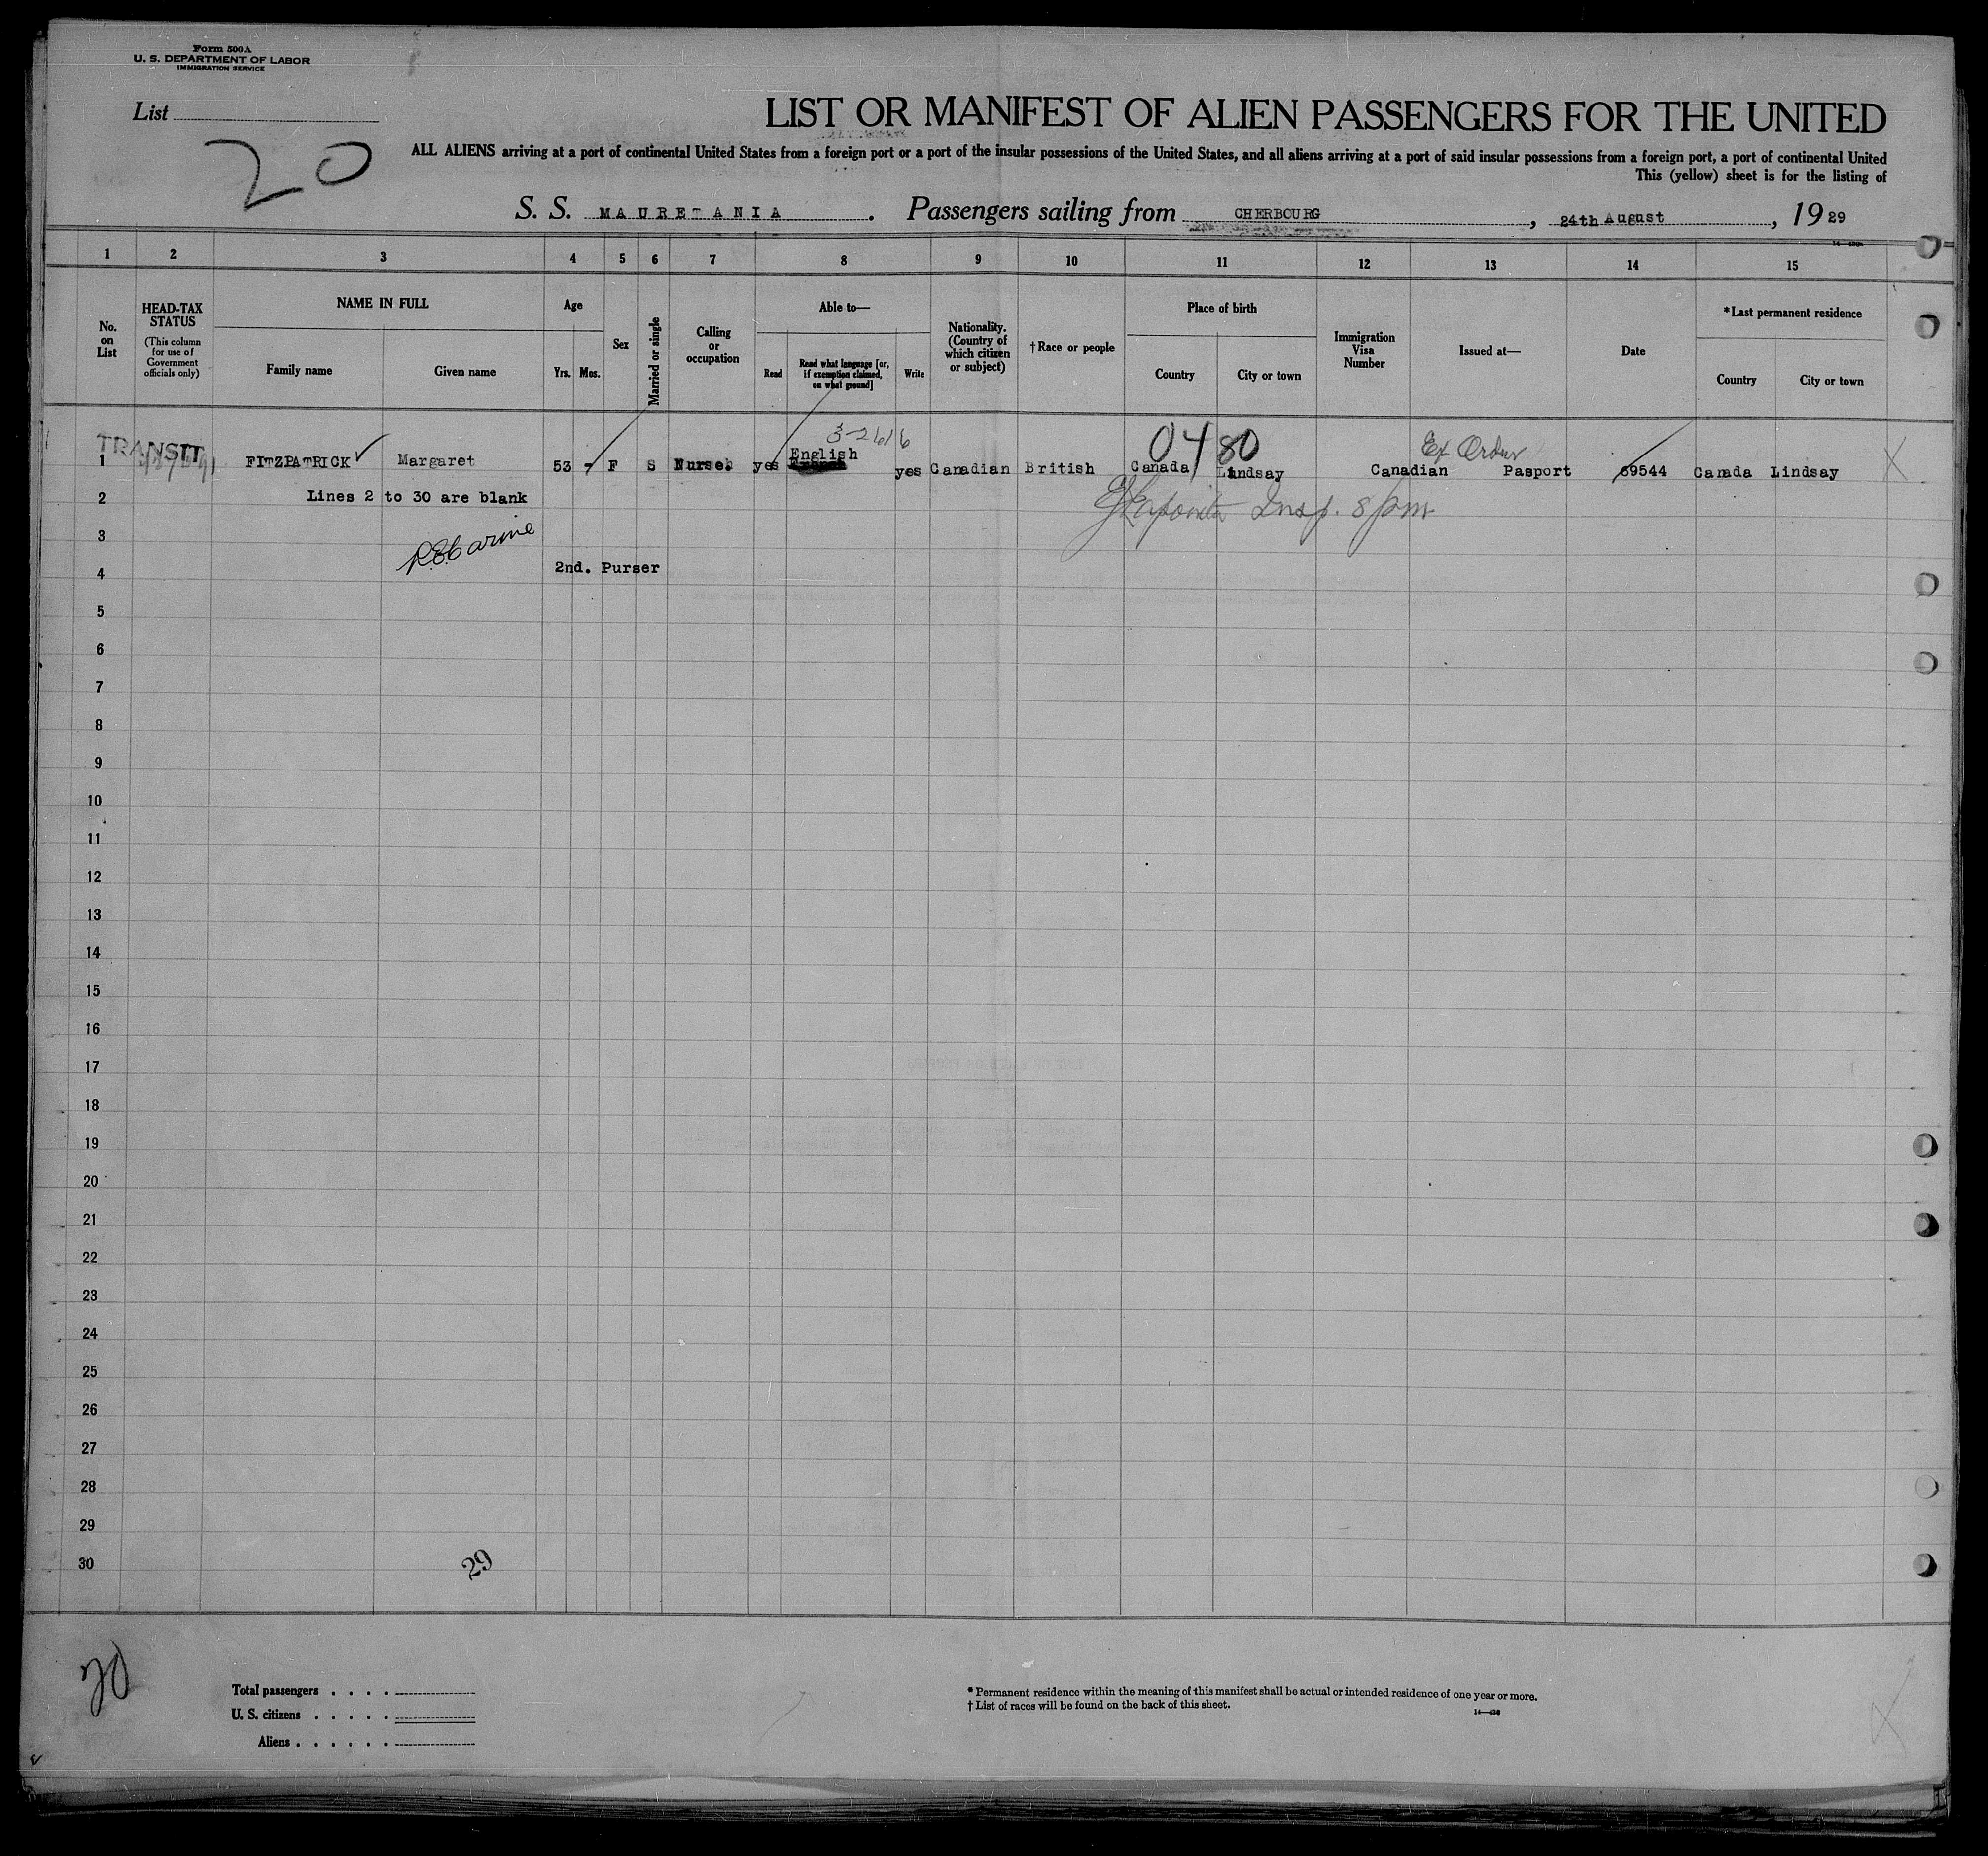 Form 500A
U. S. DEPARTMENT OF LABOR
IMMIGRATION SERVICE
List
20
LIST OR MANIFEST OF ALIEN PASSENGERS FOR THE UNITED
ALL ALIENS arriving at a port of continental United States from a foreign port or a port of the insular possessions of the United States, and all aliens arriving at a port of said insular possessions from a foreign port, a port of continental United
This (yellow) sheet is for the listing of
S. S. MAURETANIA. Passengers sailing from CHERBOURG, 24th August, 1929
1 2 3 4 5 6 7 8 9 10 11 12 13 14 15
No. on List
HEAD-TAX STATUS
(This column for use of Government officials only)
NAME IN FULL
Family name
Given name
Age
Yrs. Mos.
Sex
Married or single
Calling or occupation
Able to—
Read
Read what language [or, if exemption claimed, on what ground]
Write
Nationality. (Country of which citizen or subject)
†Race or people
Place of birth
Country
City or town
Immigration Visa Number
Issued at—
Date
*Last permanent residence
Country
City or town
3-2616
0480
Ex Order
TRANSIT
1 FITZPATRICK Margaret 53 - F S Nurse. yes English yes Canadian British Canada Lindsay Canadian Pasport 69544 Canada Lindsay X
2 Lines 2 to 30 are blank
Insp. 8 pm
3
4 2nd. Purser
5
6
7
8
9
10
11
12
13
14
15
16
17
18
19
20
21
22
23
24
25
26
27
28
29
30
29
20
Total passengers . . . .
U. S. citizens . . . . .
Aliens . . . . . .
* Permanent residence within the meaning of this manifest shall be actual or intended residence of one year or more.
† List of races will be found on the back of this sheet.